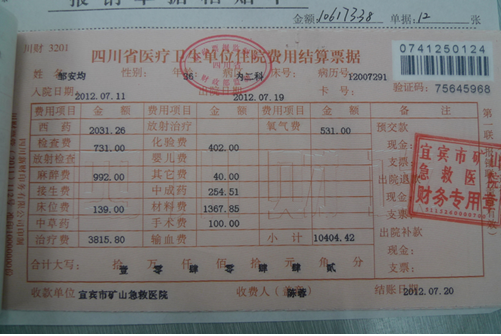 报销单据粘贴单
金额10617338 单据:12 张
川财 3201
四川省医疗卫生单位住院费用结算票据
0741250124
姓名 邹安均 性别: 年龄 86 内二科 床号: 病历号 12007291 验证码: 75645968
入院日期 2012.07.11 出院日期 2012.07.19 卡号:
费用项目 金额 费用项目 金额 费用项目 金额 备注
西药 2031.26 放射治疗 氧气费 531.00 预交款
检查费 731.00 化验费 402.00 现金:
放射检查 婴儿费 支票:
麻醉费 992.00 其它费 40.00 出院退款
接生费 中成药 254.51 现金:
床位费 139.00 材料费 1367.85 支票:
中草药 手术费 100.00 出院补款
治疗费 3815.80 输血费 小计 10404.42 现金:
合计大写: 壹 拾 万 零 仟 肆 佰 零 拾 肆 元 肆 角 贰 分 支票:
收款单位 宜宾市矿山急救医院 收费人 陈春 结账日 2012.07.20
宜宾市矿山
急救医院
财务专用章